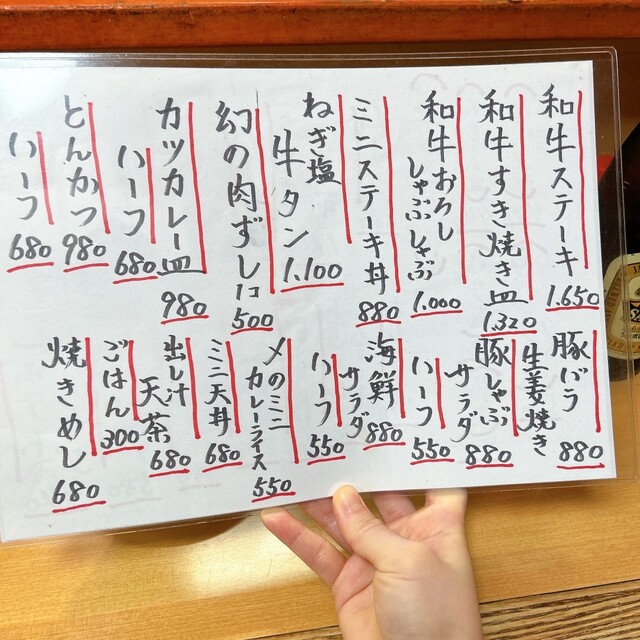 和牛ステーキ 1.650
和牛すき焼き皿 1.320
和牛おろししゃぶしゃぶ 1.000
ミニステーキ丼 880
ねぎ塩牛タン 1.100
幻の肉ずし1コ 500
カツカレー皿 980
ハーフ 680
とんかつ 980
ハーフ 680
豚バラ生姜焼き 880
豚しゃぶサラダ 880
ハーフ 550
海鮮サラダ 880
ハーフ 550
〆のミニカレーライス 550
ミニ天丼 680
出し汁天茶 680
ごはん 300
焼きめし 680